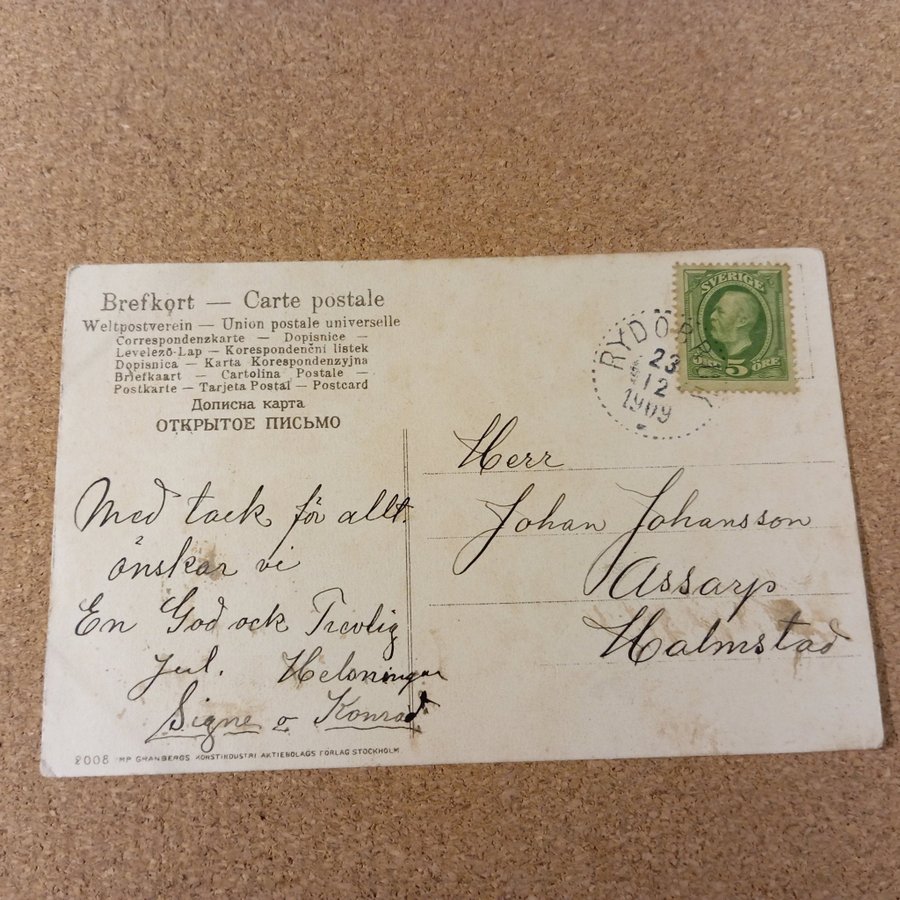 Brefkort — Carte postale
Weltpostverein — Union postale universelle
Correspondenzkarte — Dopisnice —
Levelező-Lap — Korespondenční listek
Dopisnica — Karta Korespondenzyjna
Briefkaart — Cartolina Postale —
Postkarte — Tarjeta Postal — Postcard
Дописна карта
ОТКРЫТОЕ ПИСЬМО
SVERIGE
ÖRE 5 ÖRE
RYDÖBRUK
23
12
1909
Med tack för allt.
önskar vi
En God ock Trevlig
Jul. Helsningar
Signe o Konrad
Herr
Johan Johansson
Assarp
Halmstad
2008 IMP GRANBERGS KONSTINDUSTRI AKTIEBOLAGS FÖRLAG STOCKHOLM.